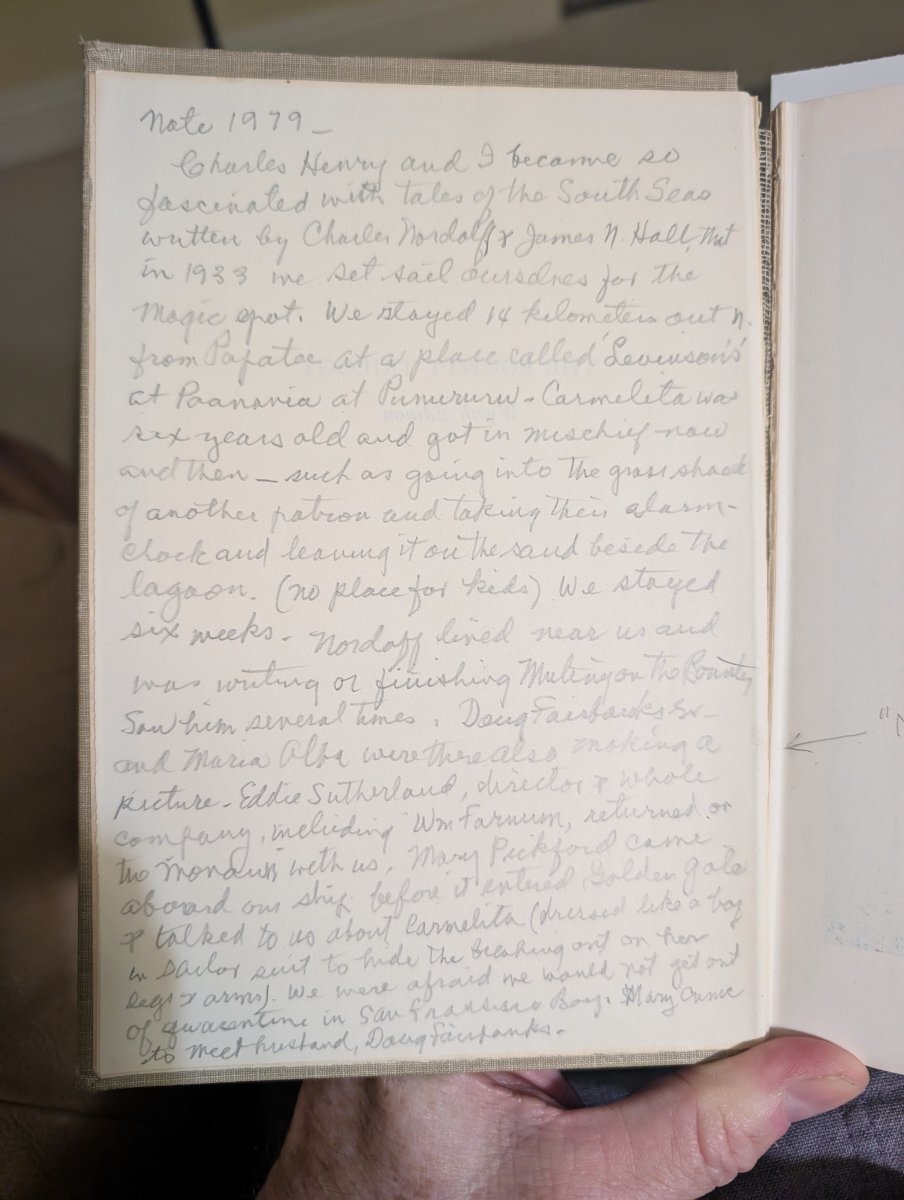 Note 1979 –
Charles Henry and I became so
fascinated with tales of the South Seas
written by Charles Nordoff & James N. Hall, that
in 1933 we set sail ourselves for the
magic spot. We stayed 14 kilometers out n.
from Papatee at a place called 'Levinson's'
at Paanavia at Punururu – Carmelita was
six years old and got in mischief now
and then – such as going into the grass shack
of another patron and taking their alarm-
clock and leaving it on the sand beside the
lagoon. (no place for kids) We stayed
six weeks – Nordoff lived near us and
was writing or finishing Mutiny on the Bounty
Saw him several times. Doug Fairbanks Sr –
and Maria Alba were there also making a
picture – Eddie Sutherland, director & whole
company, including Wm Farnum, returned on
the with us. Mary Pickford came
aboard our ship before it entered Golden Gate
& talked to us about Carmelita (dressed like a boy
in sailor suit to hide the breaking out on her
legs & arms). We were afraid we would not get out
of quarentine in San Francisco Bay. Mary came
to meet husband, Doug Fairbanks.
"N